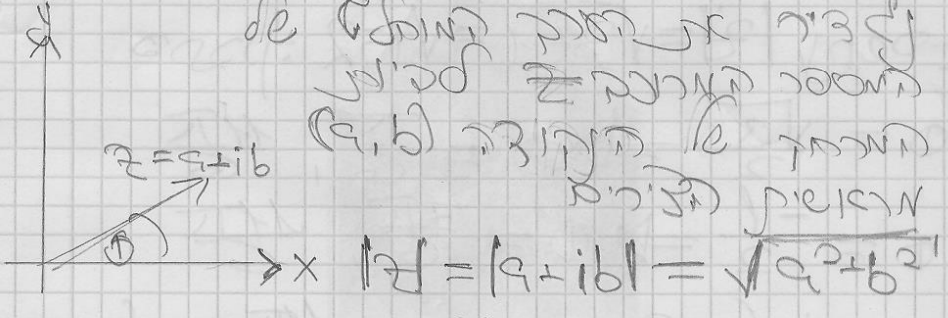 נגדיר את הערך המוחלט של
המספר המרוכב z להיות
המרחק של הנקודה (a,b)
מראשית הצירים
y
z=a+ib
x
|z| = |a+ib| = √a²+b²